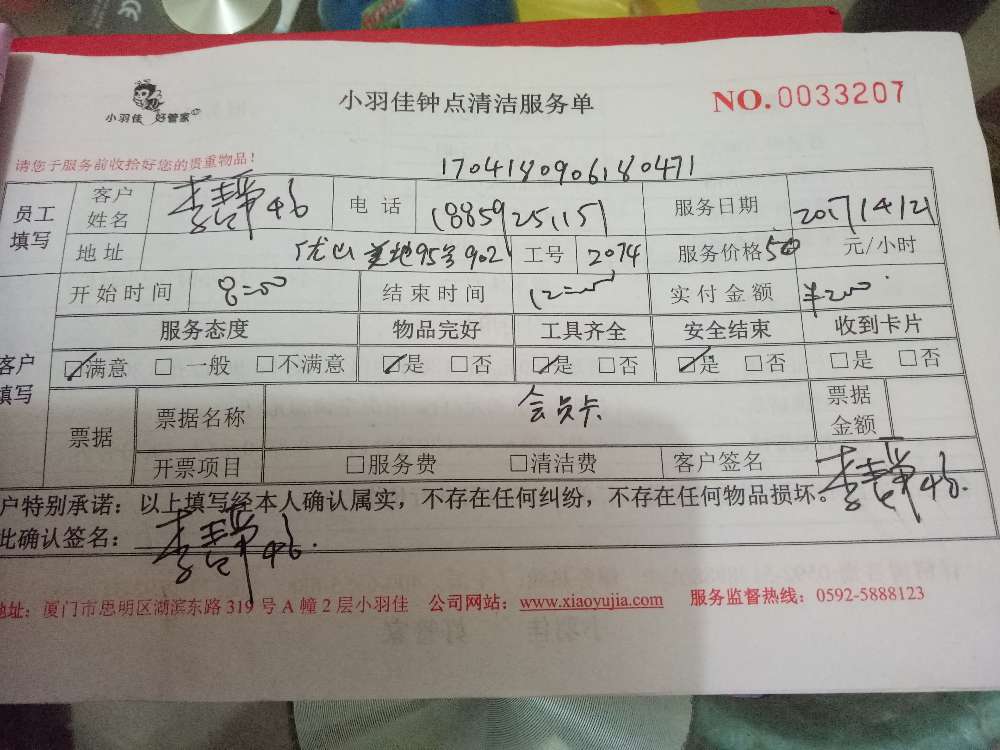 小羽佳 好管家
小羽佳钟点清洁服务单
NO.0033207
请您于服务前收拾好您的贵重物品!
1704180906180471
员工填写 客户姓名 电话 18859251151 服务日期 2017/4/21
地址 优山美地95号902 工号 2074 服务价格50 元/小时
开始时间 8:00 结束时间 12:00 实付金额 ¥200
客户填写 服务态度 物品完好 工具齐全 安全结束 收到卡片
☑满意 □一般 □不满意 ☑是 □否 ☑是 □否 ☑是 □否 □是 □否
票据 票据名称 会员卡 票据金额
开票项目 □服务费 □清洁费 客户签名
户特别承诺:以上填写经本人确认属实,不存在任何纠纷,不存在任何物品损坏。
此确认签名:
地址:厦门市思明区湖滨东路319号A幢2层小羽佳 公司网站:www.xiaoyujia.com 服务监督热线:0592-5888123